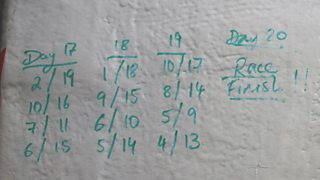 Day 17 18 19 Day 20
2/19 1/18 10/17 Race
10/16 9/15 8/14 Finish!!
7/11 6/10 5/9
6/15 5/14 4/13